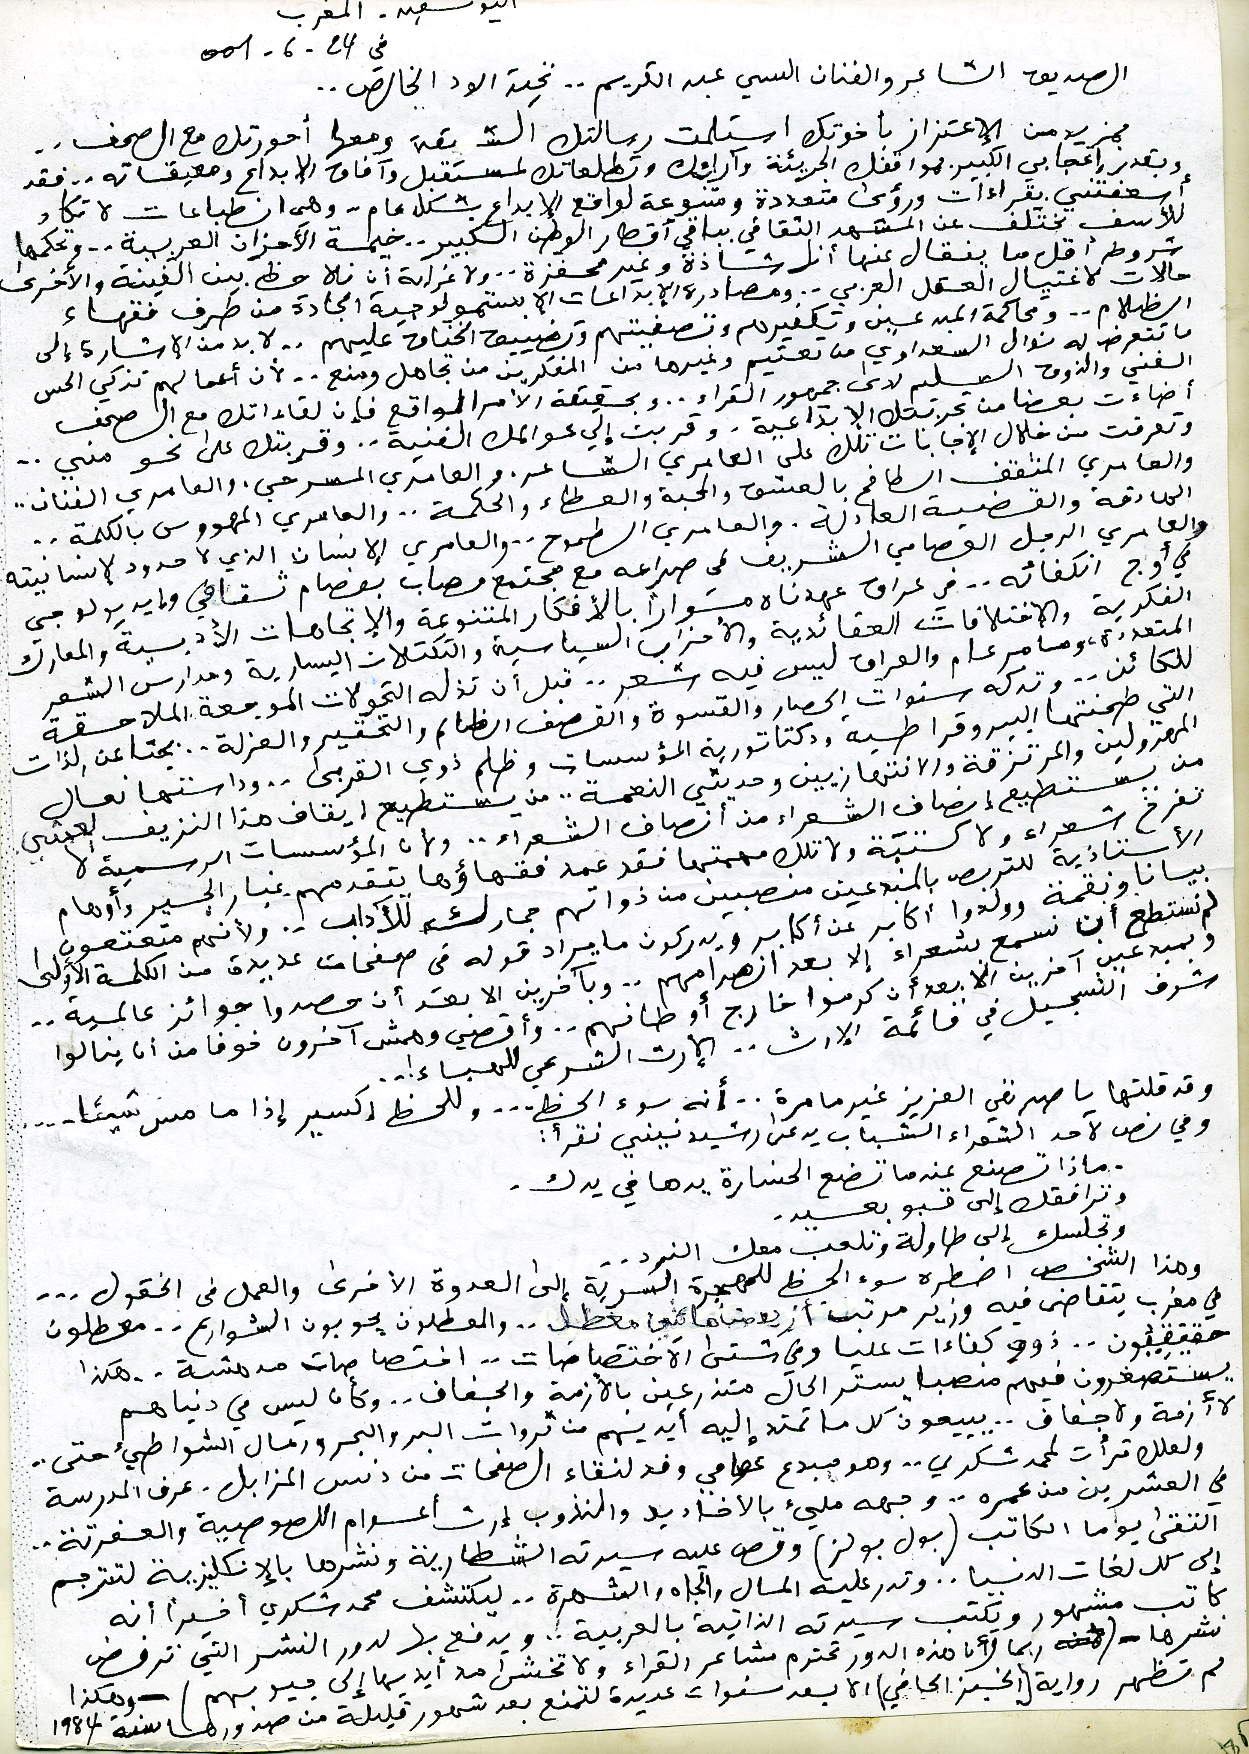 اليوسفية - المغرب
في 24 - 6 - 001
الصديق الشاعر والفنان السي عبد الكريم .. تحية الود الخالص ..
بمزيد من الإعتزاز بأخوتك استلمت رسالتك الشيقة ومعها أحورتك مع الصحف ..
وبقدر إعجابي الكبير بمواقفك الجريئة وآرائك وتطلعاتك لمستقبل وآفاق الابداع ومعيقاته .. فقد
أسعفتني بقراءات ورؤى متعددة ومتنوعة لواقع الإبداع بشكل عام .. وهي انطباعات لا تكاد
للأسف تختلف عن المشهد الثقافي بباقي أقطار الوطن الكبير .. خيمة الأحزان العربية .. وتحكمها
شروط أقل ما يقال عنها أنها شاذة وغير محفزة .. ولا غرابة أن نلاحظ بين الفينة والأخرى
حالات لاغتيال العقل العربي .. ومصادرة الإبداعات الابستمولوجية الجادة من طرف فقهاء
الظلام .. ومحاكمة المبدعين وتكفيرهم وتصفيتهم وتضييق الخناق عليهم .. لا بد من الاشارة إلى
ما تتعرض له نوال السعداوي من تعتيم وغيرها من المفكرين من تجاهل ومنع .. لأن أعمالهم تذكي الحس
الفني والذوق السليم لدى جمهور القراء .. وبحقيقة الأمر الواقع فإن لقاءاتك مع الصحف
أضاءت بعضا من تجربتك الإبداعية .. وقربت إلي عوالمك الفنية .. وقربتك على نحو مني ..
وتعرفت من خلال الإجابات تلك على العامري الشاعر . والعامري المسرحي . والعامري الفنان ..
والعامري المثقف الطافح بالعشق والمحبة والعطاء والحكمة .. والعامري المهووس بالكلمة ..
الصادقة والقضية العادلة . والعامري الطموح .. والعامري الإنسان الذي لا حدود لإنسانيته
والعامري الرجل العصامي الشريف في صراعه مع مجتمع مصاب بفصام ثقافي وايديولوجي
في أوج انكفائه .. في عراق عهدناه مشوارا بالأفكار المتنوعة والإتجاهات الأدبية والمعارك
الفكرية والاختلافات العقائدية والأحزاب السياسية والتكتلات اليسارية ومدارس الشعر
المتعددة، وما مر عام والعراق ليس فيه شعر .. قبل أن تذله التحولات الموجعة الملاحقة
للكائن .. وتدكه سنوات الحصار والقسوة والقصف الظالم والتحقير والعزلة .. بحثا عن الذات
التي طحنتها البيروقراطية ودكتاتورية المؤسسات وظلم ذوي القربى .. وداستها نعال
المهرولين والمرتزقة والانتهازيين وحديثي النعمة .. من يستطيع ايقاف هذا النزيف العبثي
من يستطيع إنصاف الشعراء من أنصاف الشعراء .. ولان المؤسسات الرسمية لا
تفرخ شعراء ولا كتبة ولا تلك مهمتها فقد عمد فقهاؤها يتقدمهم غبار الجير وأوهام
الأستاذية للتربص بالمبدعين منصبين من ذواتهم جمارك للآداب .. ولأنهم متعتعون
بيانا ونغمة وولدوا أكابر عن أكابر ويدركون ما يراد قوله في صفحات عديدة من الكلمة الأولى
لم نستطع أن نسمع بشعراء إلا بعد انصرامهم .. وبآخرين الا بعد أن حصدوا جوائز عالمية ..
وبمبدعين آخرين الا بعد أن كرموا خارج أوطانهم .. وأقصي وهمش آخرون خوفا من أن ينالوا
شرف التسجيل في قائمة الإرث .. الإرث الشرعي للهباء !..
وقد قلتها يا صديقي العزيز غير ما مرة .. أنه سوء الحظ ... وللحظ إكسير إذا ما مس شيئا ....
وفي نص لأحد الشعراء الشباب يدعى رشيد نيني نقرأ :
- ماذا تصنع عندما تضع الخسارة يدها في يدك .
وترافقك إلى قبو بعيد .
وتجلسك إلى طاولة وتلعب معك النرد ...
وهذا الشخص اضطره سوء الحظ للهجرة السرية إلى العدوة الأخرى والعمل في الحقول ...
في مغرب يتقاضى فيه وزير مرتب أزيد من معطل .. والمعطلون يجوبون الشوارع .. معطلون
حقيقيون .. ذوو كفاءات عليا وفي شتى الاختصاصات .. اختصاصات مدهشة .. هكذا
يستصغرون فيهم منصبا يستر الحال متذرعين بالأزمة والجفاف .. وكأن ليس في دنياهم
لا أزمة ولا جفاف .. يبيعون كل ما تمتد إليه أيديهم من ثروات البر والبحر ورمال الشواطيء حتى ..
ولعلك قرأت لمحمد شكري .. وهو مبدع عصامي وفد لنقاء الصفحات من دنس المزابل . عرف المدرسة
في العشرين من عمره .. وجهه مليء بالأخاديد والندوب إرث أعوام اللصوصية والعفرتة ..
التقى يوما الكاتب (بول بولز) وقص عليه سيرته الشطارية ونشرها بالإنكليزية لتترجم
إلى كل لغات الدنيا .. وتدر عليه المال والجاه والشهرة .. ليكتشف محمد شكري أخيرا أنه
كاتب مشهور ويكتب سيرته الذاتية بالعربية .. ويدفع بها لدور النشر التي ترفض
نشرها - (ربما لأن هذه الدور تحترم مشاعر القراء ولا تخشى مد أيديها إلى جيوبهم) - وهكذا
لم تظهر رواية (الخبز الحافي) الا بعد سنوات عديدة لتمنع بعد شهور قليلة من صدورها سنة 1984